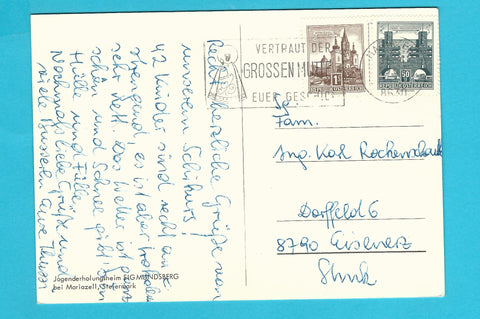 Recht herzliche Grüße von
unserem Schikurs!
42 Kinder sind recht an-
strengend, es ist aber trotzdem
sehr nett. Das Wetter ist ganz
schön und Schnee gibt's in
Hülle und Fülle.
Nochmals liebe Grüße und
viele Busserln Eure
Jugenderholungsheim SIGMUNDSBERG
bei Mariazell, Steiermark
VERTRAUT DER
GROSSEN
EUER
REPUBLIK ÖSTERREICH
REPUBLIK ÖSTERREICH
50
Fam.
Ing. Karl
Dorffeld 6
8790 Eisenerz
Stmk